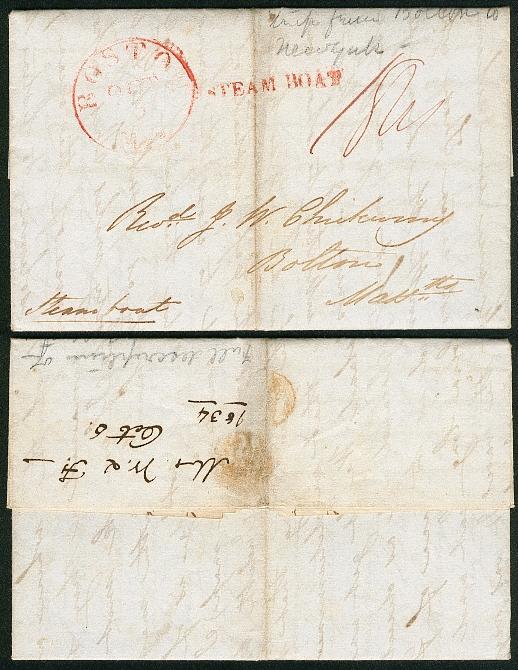 trip from Bolton to
New york -
BOSTO
OCT
STEAM BOAT
Revd. J. W. Chickering
Bolton
Massts
Steam boat
Full description of
1834
Oct 6.
Mrs W. & F.